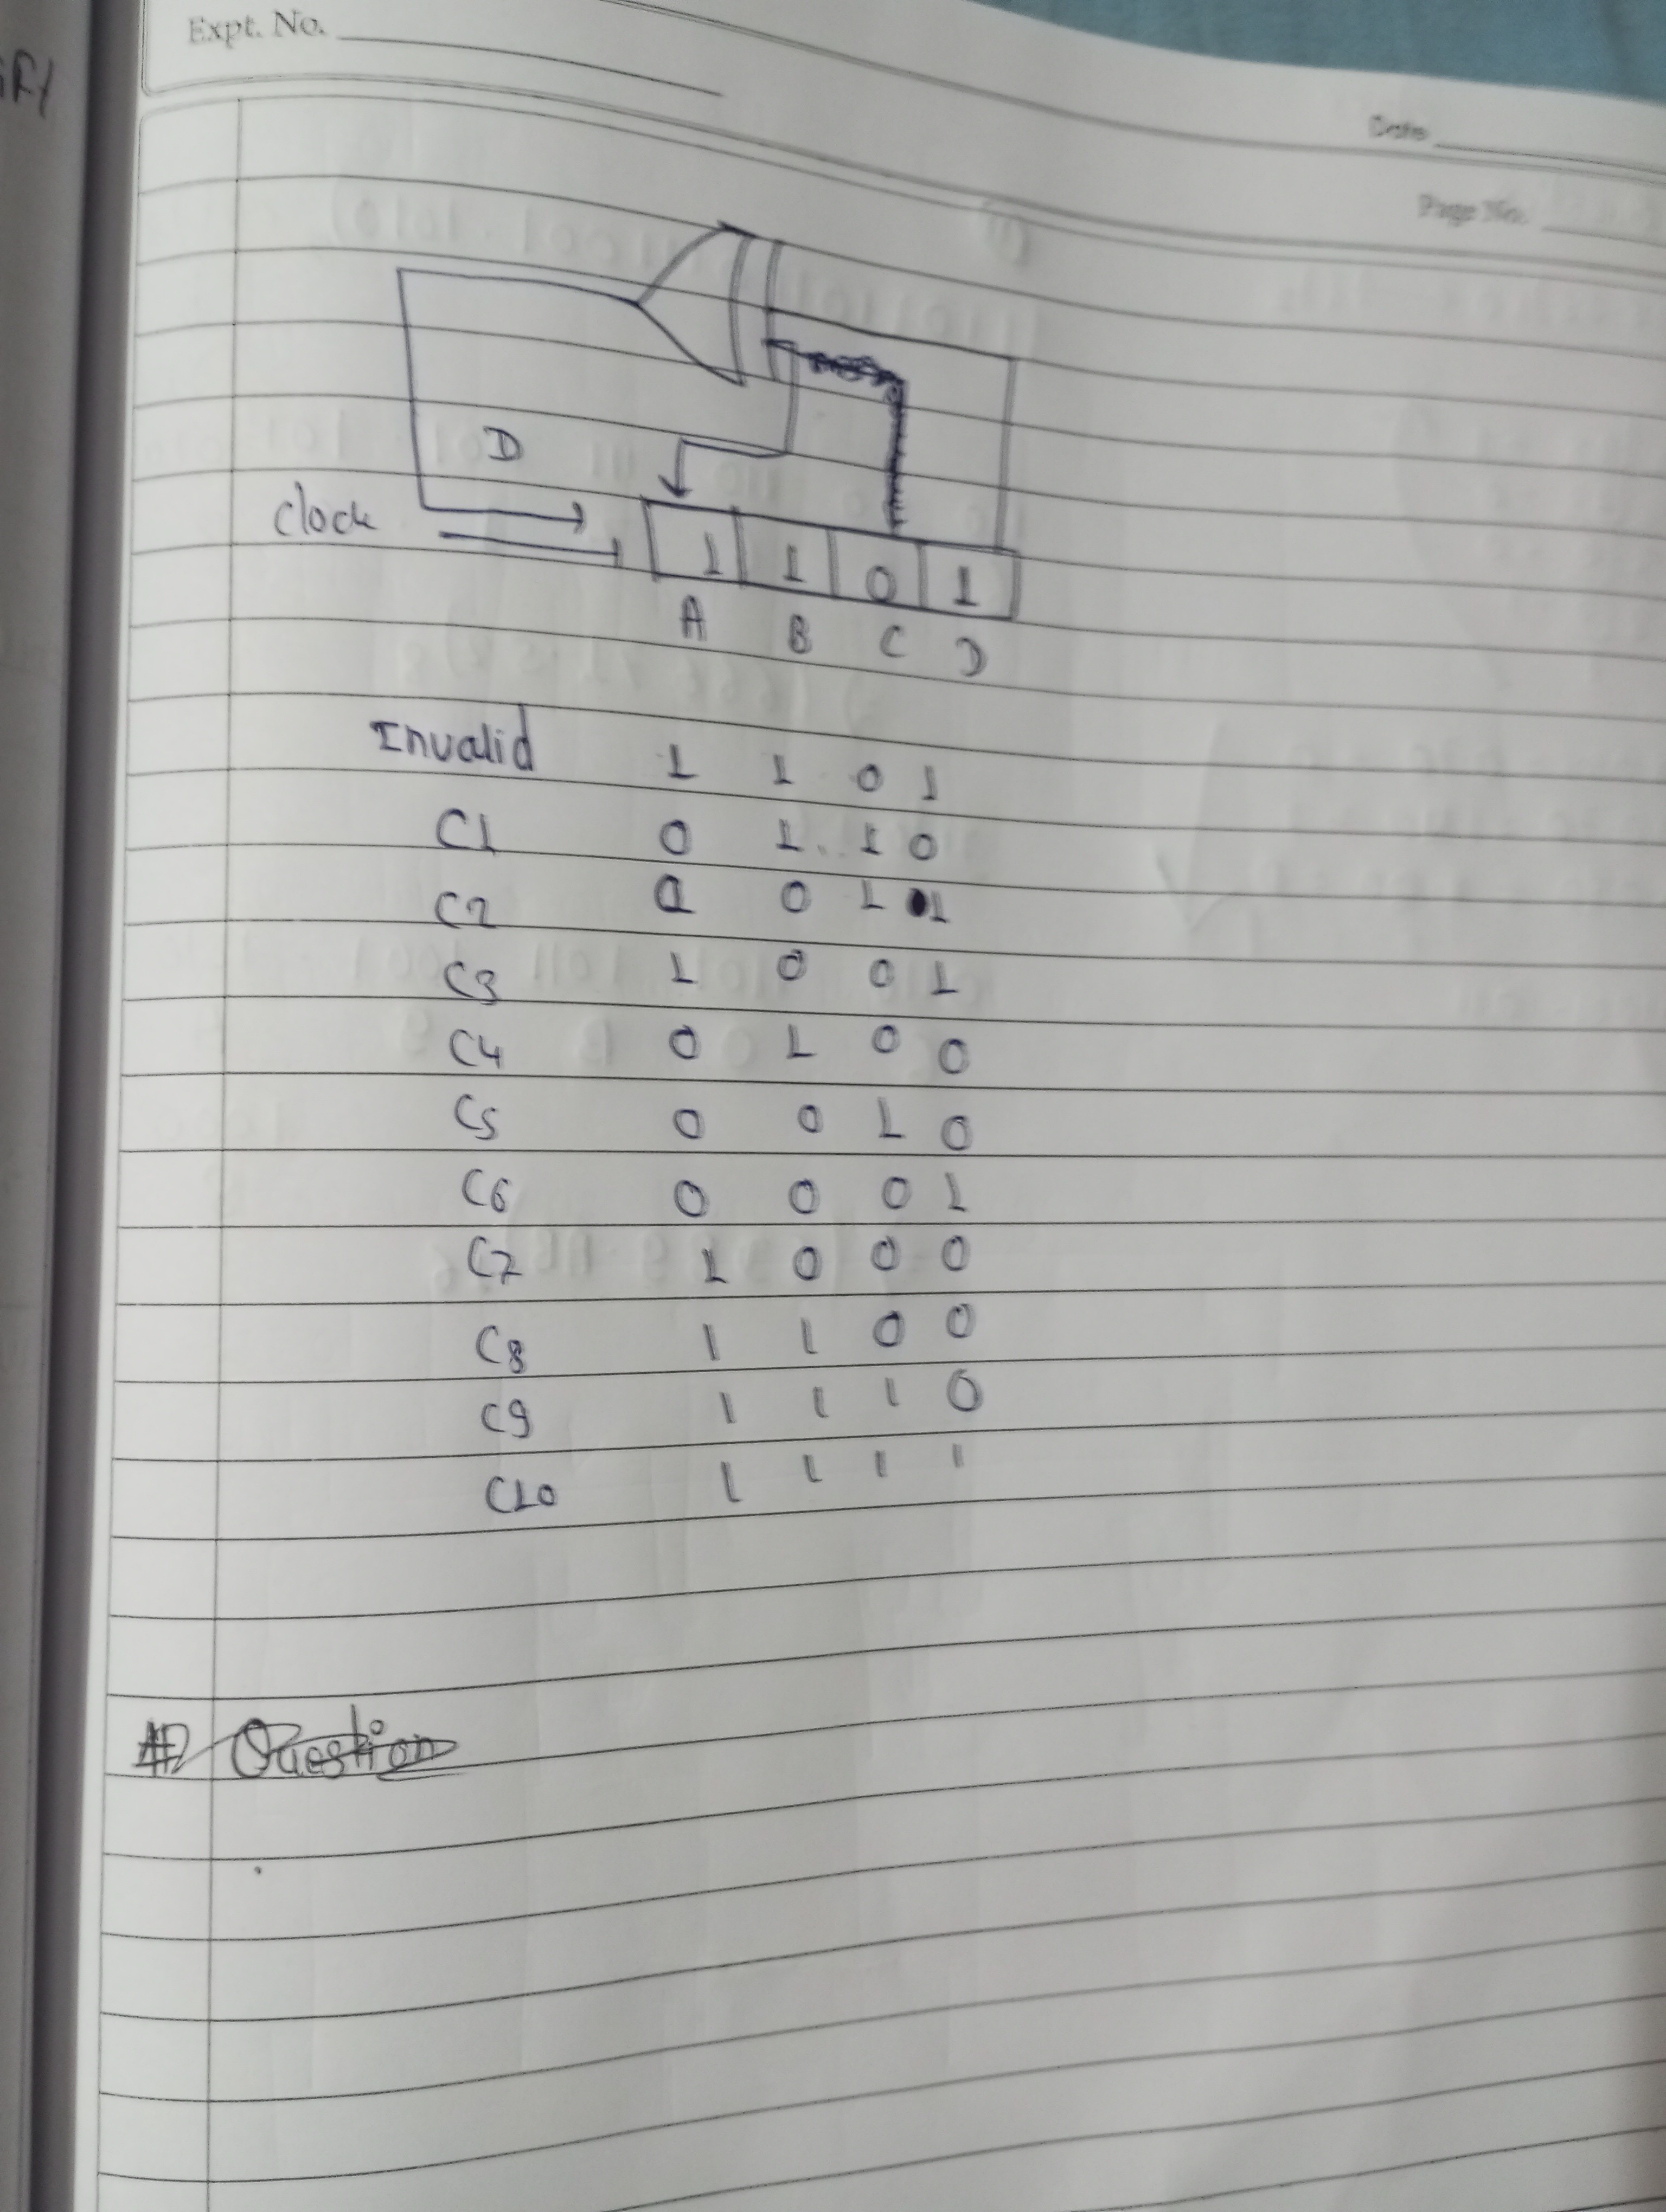 Expt. No.
Date
Page No.
D
Clock
1 1 0 1
A B C D
Invalid 1 1 0 1
C1 0 1 1 0
C2 0 1 1
C3 1 0 0 1
C4 0 1 0 0
C5 0 0 1 0
C6 0 0 0 1
C7 1 0 0 0
C8 1 1 0 0
C9 1 1 1 0
C10 1 1 1 1
Question